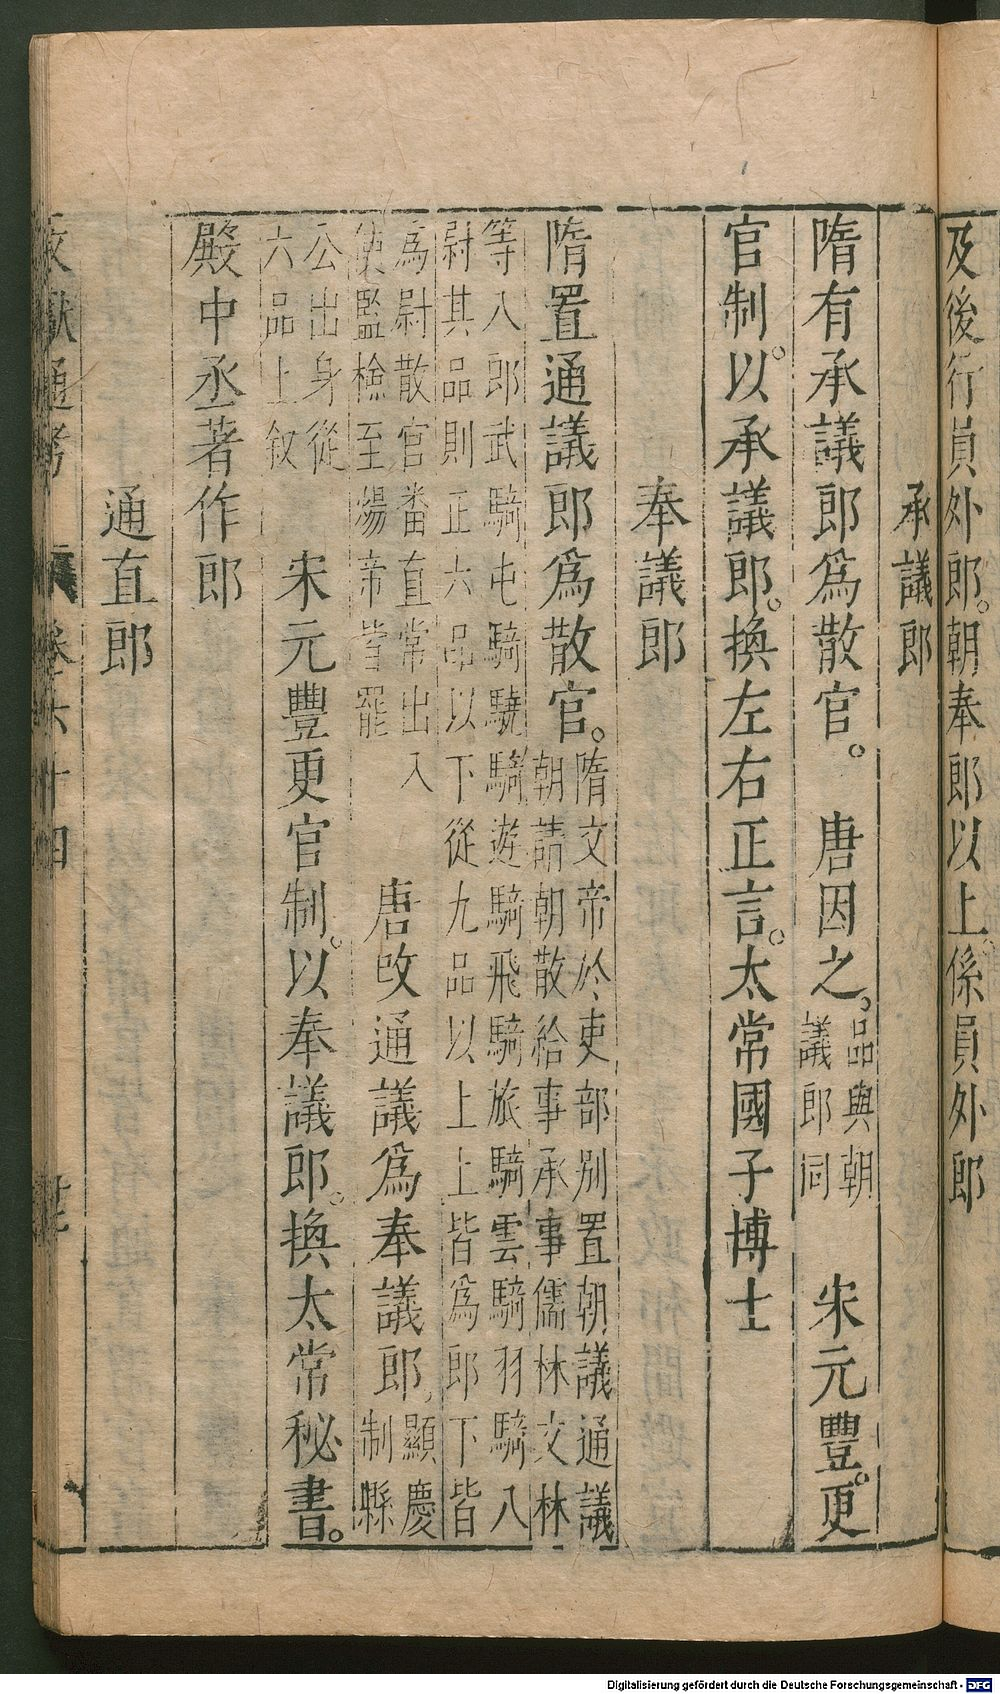 及後行員外郎。朝奉郎以上。係員外郎
承議郎
隋有承議郎爲散官。唐因之。品與朝
議郎同
宋元豐。更
官制。以承議郎。換左右正言。太常國子博士
奉議郎
隋置通議郎爲散官。隋文帝於吏部别置朝議通議
朝請朝散給事承事儒林文林
等八郎武騎屯騎驍騎遊騎飛騎旅騎雲騎羽騎八
尉其品則正六品以下從九品以上上皆爲郎下皆
爲尉散官番直常出入
使監檢至煬帝皆罷
唐改通議爲奉議郎,顯慶
制縣
公出身從
六品上叙
宋元豐更官制。以奉議郎。換太常秘書。
殿中丞著作郎
通直郎
文獻通考 卷六十四